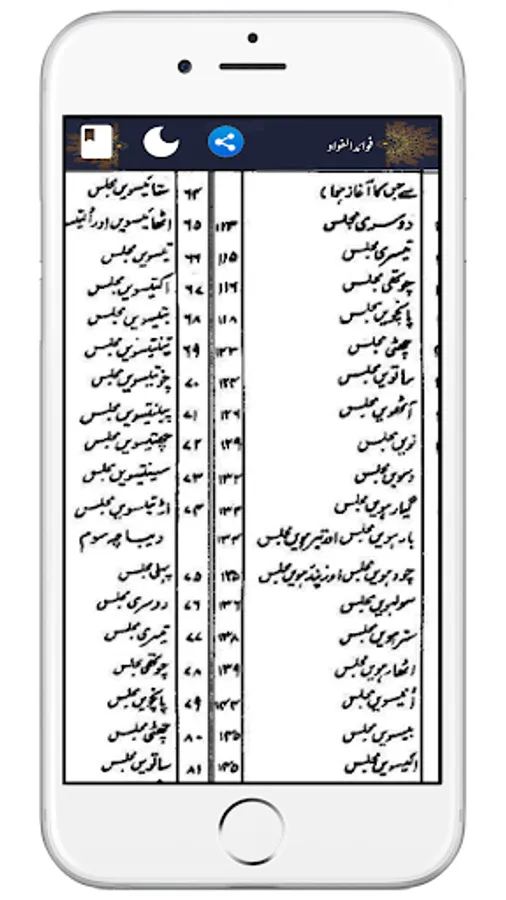 فوائد الفواد
سے جس کا آغاز ہوا)
دوسری مجلس ۱۱۳
تیسری مجلس ۱۱۵
چوتھی مجلس ۱۱۶
پانچویں مجلس ۱۱۸
چھٹی مجلس
ساتویں مجلس
آٹھویں مجلس ۱۲۶
نویں مجلس ۱۲۹
دسویں مجلس ۱۳۲
گیارہویں مجلس
بارہویں مجلس اور تیرہویں مجلس ۱۳۴
چودہویں مجلس اور پندرہویں مجلس ۱۳۵
سولہویں مجلس ۱۳۶
سترہویں مجلس ۱۳۸
اٹھارہویں مجلس ۱۳۹
اُنیسویں مجلس
بیسویں مجلس ۱۴۵
اکیسویں مجلس ۱۴۵
۶۴ ستائیسویں مجلس
۶۵ اٹھائیسویں اور
۶۶ تیسویں مجلس
۶۷ اکتیسویں مجلس
۶۸ بتیسویں مجلس
۶۹ تینتیسویں مجلس
۷۰ چونتیسویں مجلس
۷۱ پینتیسویں مجلس
۷۲ چھتیسویں مجلس
۷۳ سینتیسویں مجلس
۷۴ اڑتیسویں مجلس
دیباچہ سوم
۷۵ پہلی مجلس
۷۶ دوسری مجلس
۷۷ تیسری مجلس
۷۸ چوتھی مجلس
۷۹ پانچویں مجلس
۸۰ چھٹی مجلس
۸۱ ساتویں مجلس